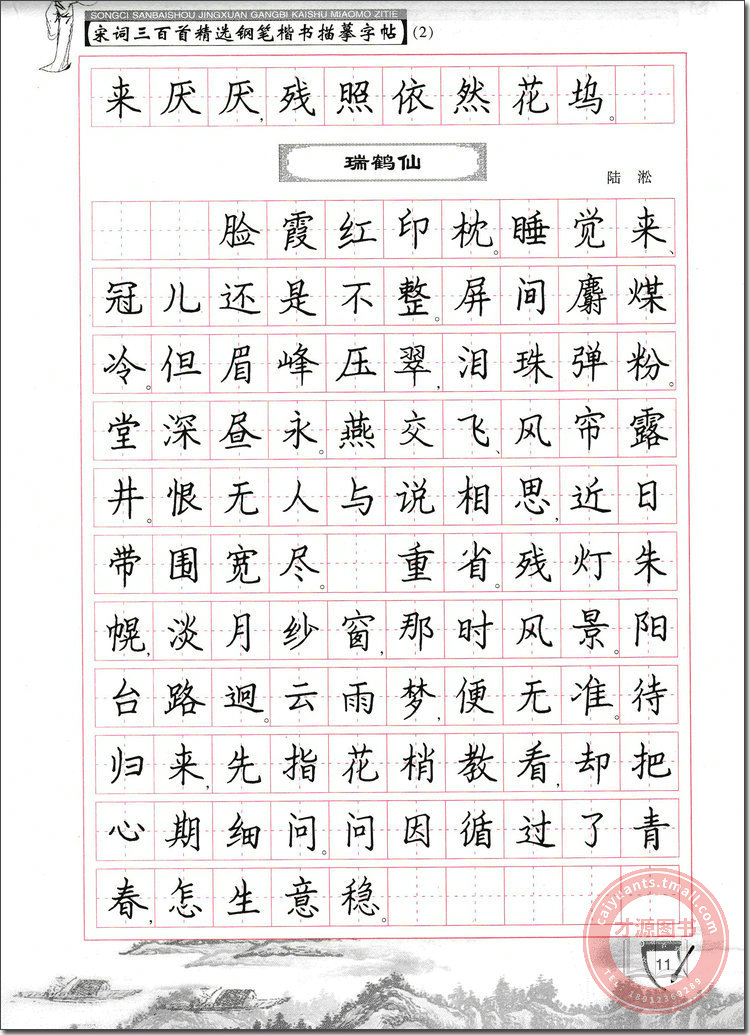 SONGCI SANBAISHOU JINGXUAN GANGBI KAISHU MIAOMO ZITIE
宋词三百首精选钢笔楷书描摹字帖(2)
来厌厌,残照依然花坞。
瑞鹤仙
陆淞
脸霞红印枕。睡觉来、
冠儿还是不整。屏间麝煤
冷。但眉峰压翠,泪珠弹粉。
堂深昼永。燕交飞、风帘露
井。恨无人与说相思,近日
带围宽尽。 重省。残灯朱
幌,淡月纱窗,那时风景。阳
台路迥。云雨梦,便无准。待
归来,先指花梢教看,却把
心期细问。问因循过了青
春,怎生意稳。
11
caiyuants.tmall.com
才源图书
TEL:18912369289